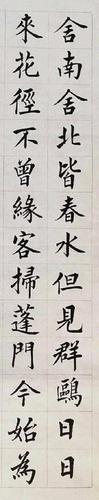 舍南舍北皆春水但見群鷗日日
來花徑不曾緣客掃蓬門今始為